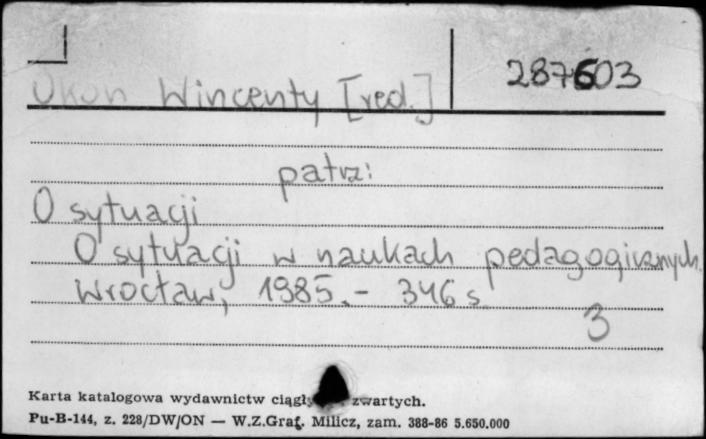 287603
Okoń Wincenty [red.]
patrz:
O sytuacji
O sytuacji w naukach pedagogicznych.
Wrocław, 1985. - 346 s
3
Karta katalogowa wydawnictw zwartych.
Pu-B-144, z. 228/DW/ON — W.Z.Graf. Milicz, zam. 388-86 5.650.000